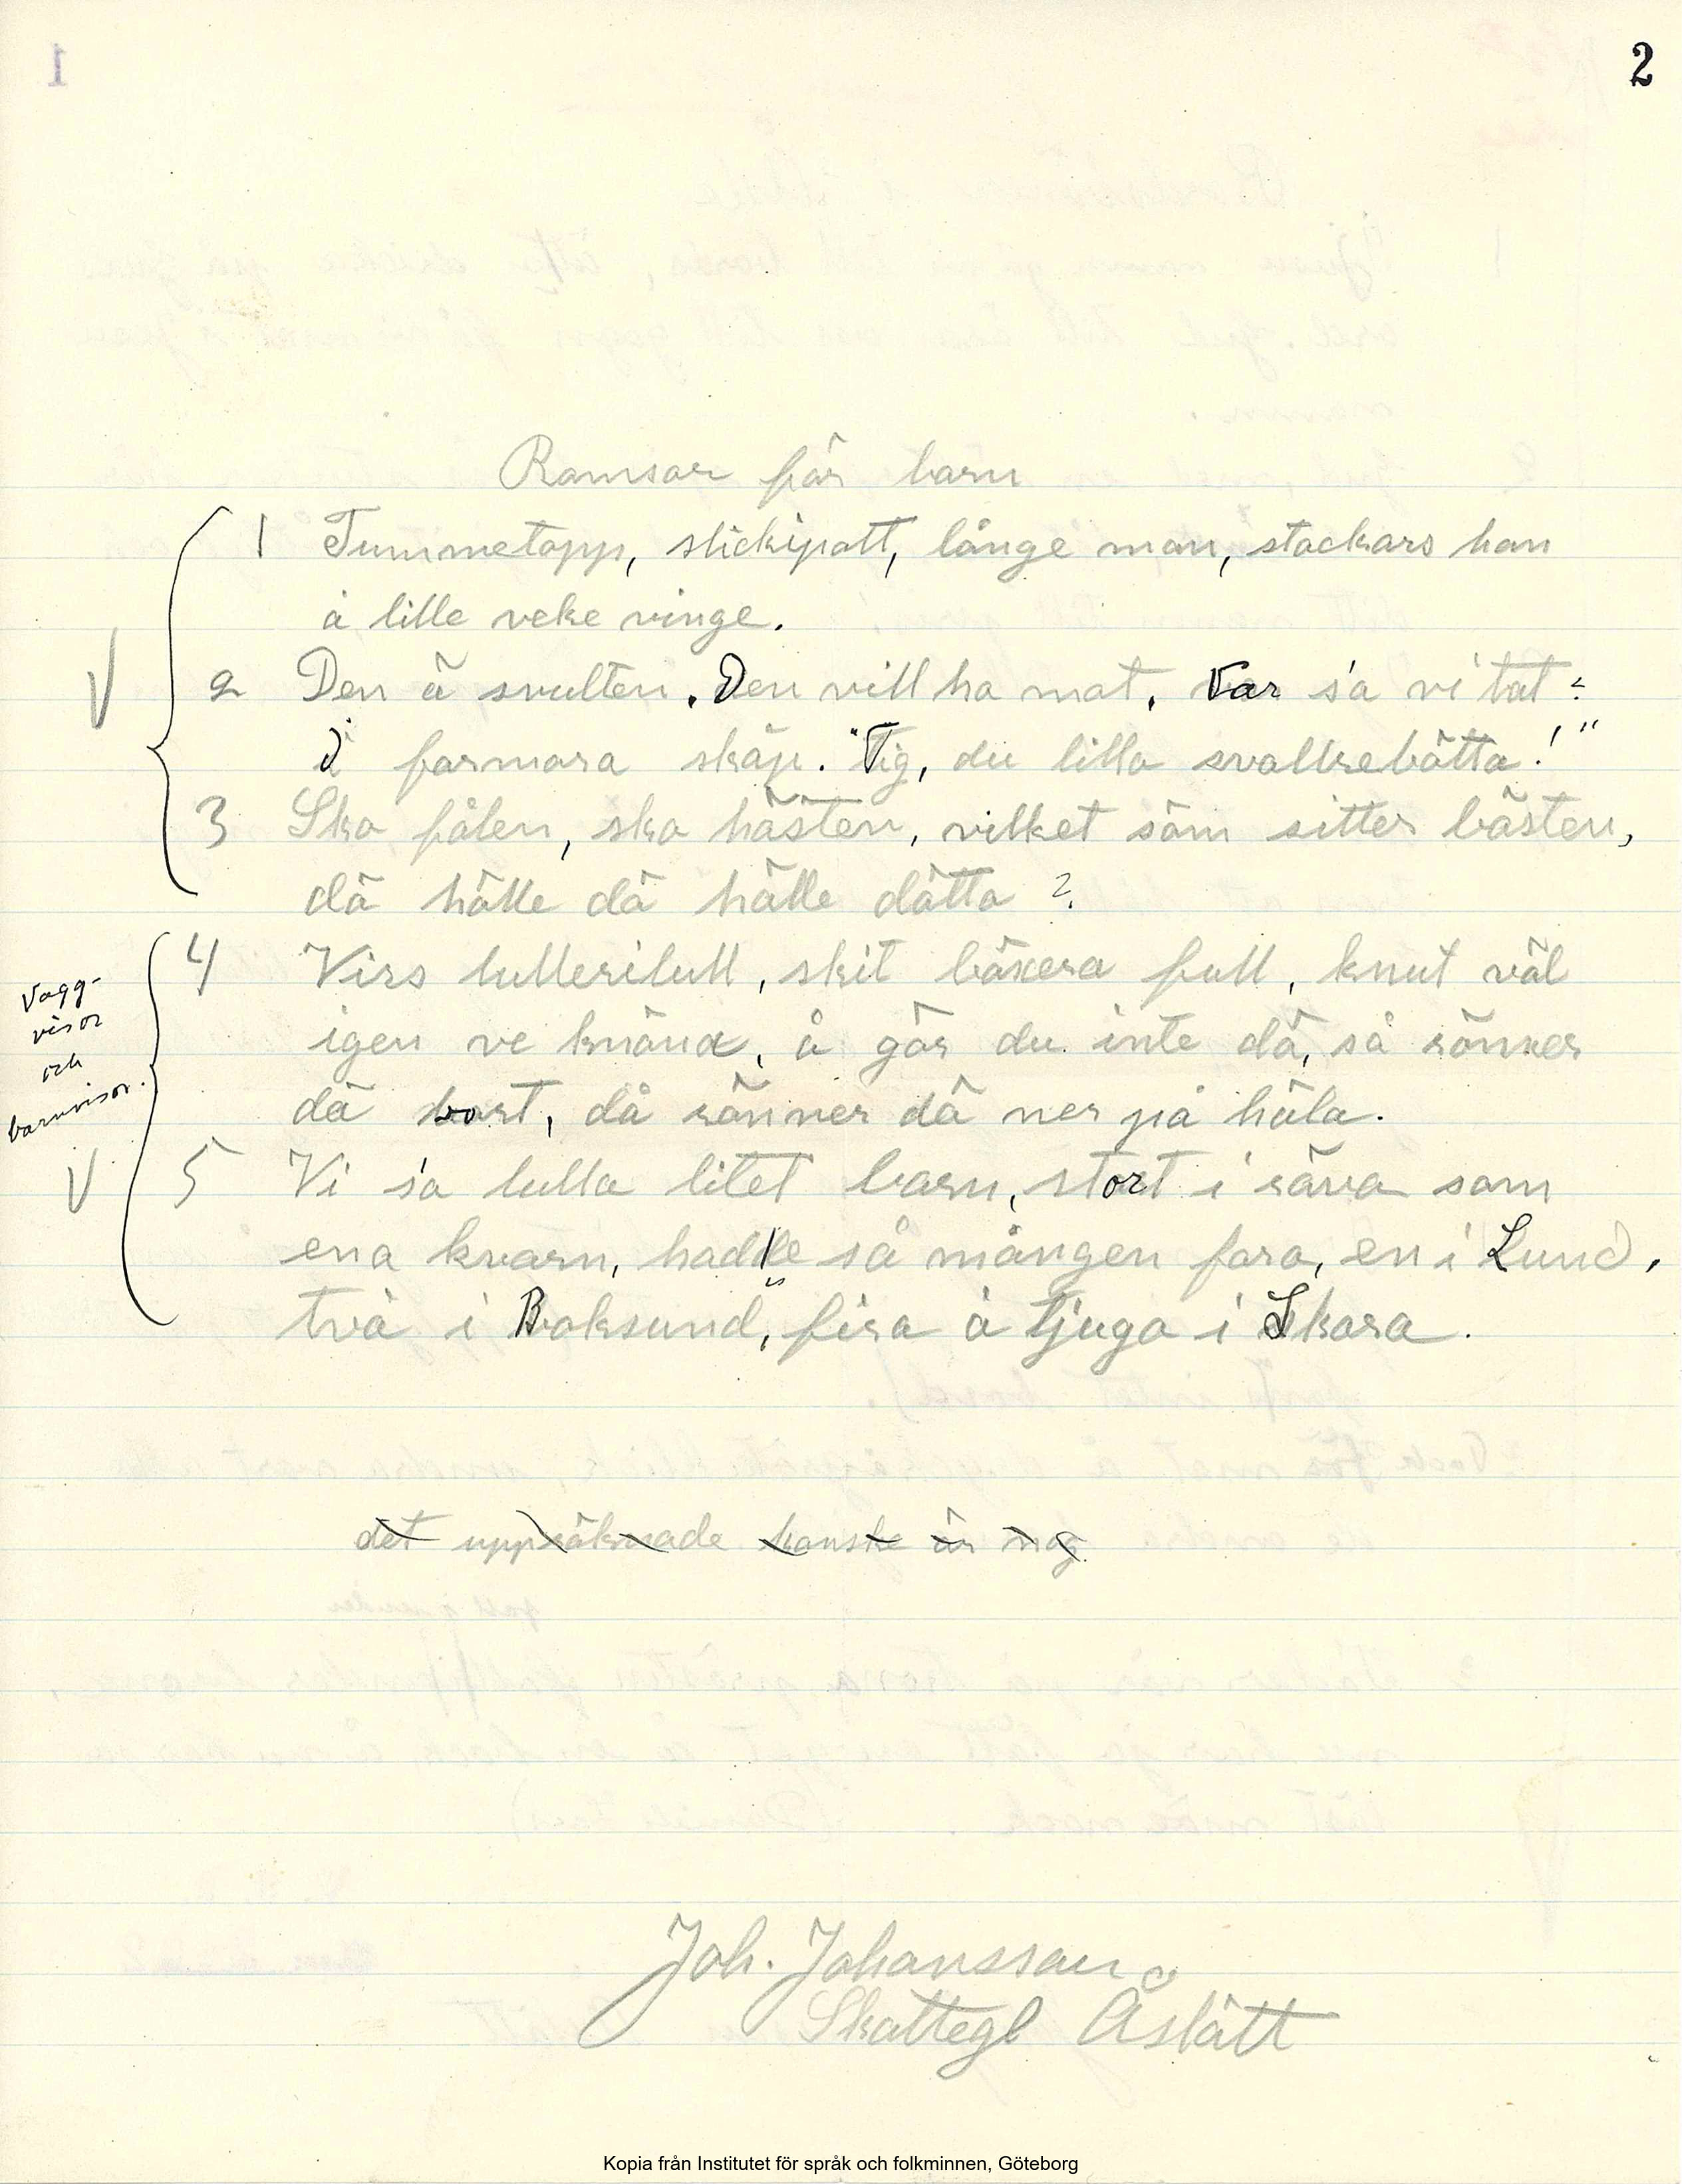 2
Ramsor för barn
1 Tummetopp, slickipott, långe man, stackars han
å lille veke vinge.
2 Den ä svulten. Den vill ha mat. Var s'a vi ta't?
I farmora skåp. "Tig, du lilla svallrebötta!"
3 Sko fålen, sko hästen, vilket söm sitter bästen,
dä hälle dä hälle dätta?
4 Virs lullerilull, skit böxera full, knut väl
igen ve knäna, å gör du inte dä, så rönner
dä bort, då rönner dä ner på häla.
5 Vi s'a lulla litet barn, stort i räva som
ena kvarn, hadde så mången fara, en i Lund,
två i Boksund, fira å tjugo i Skara.
Vagg-
visor
och
barnvisor.
det uppräknade kanske är nog
Joh. Johansson
Skattegl Åslätt
Kopia från Institutet för språk och folkminnen, Göteborg